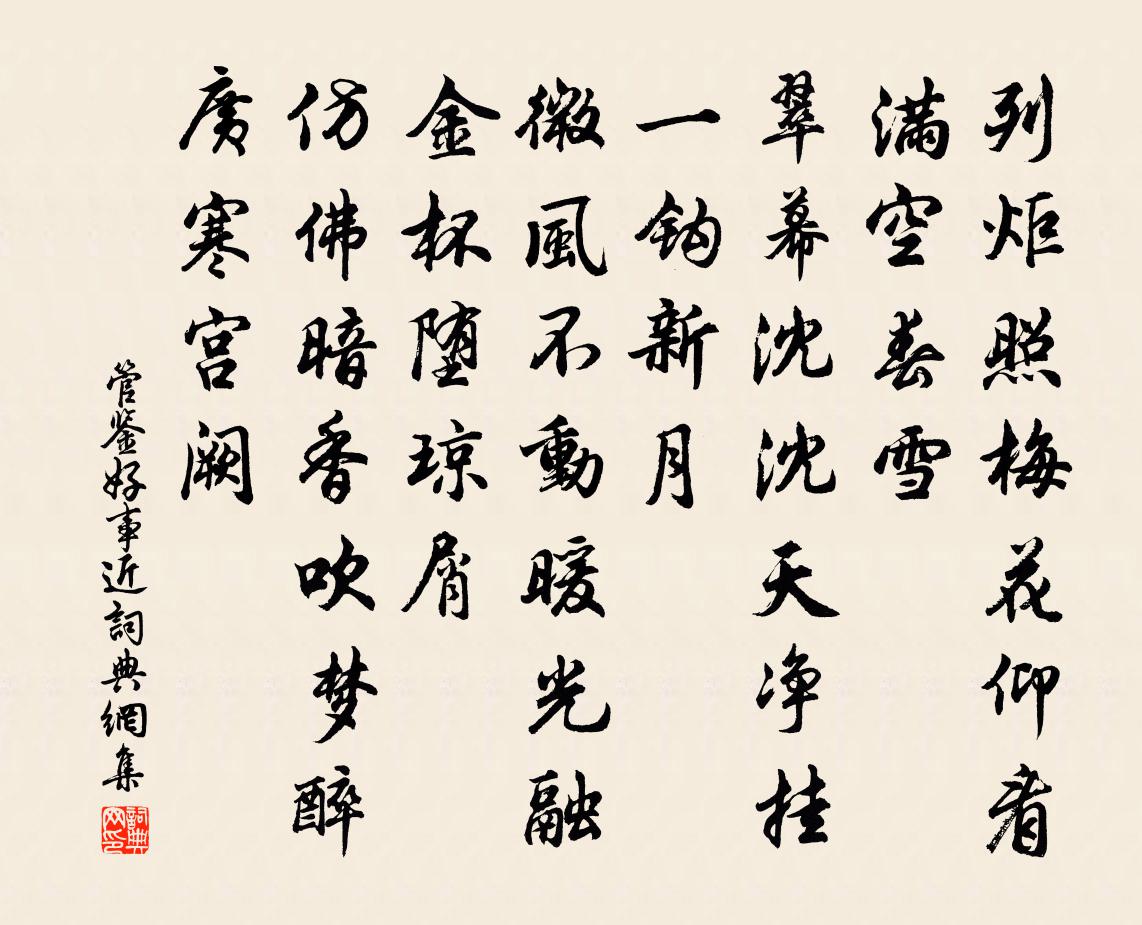 列炬照梅花仰看
满空春雪
翠幕沈沈天净挂
一钩新月
微風不動暖光融
金杯堕琼屑
仿佛暗香吹梦醉
廣寒宫阙
管鉴好事近詞典網集
詞典網印